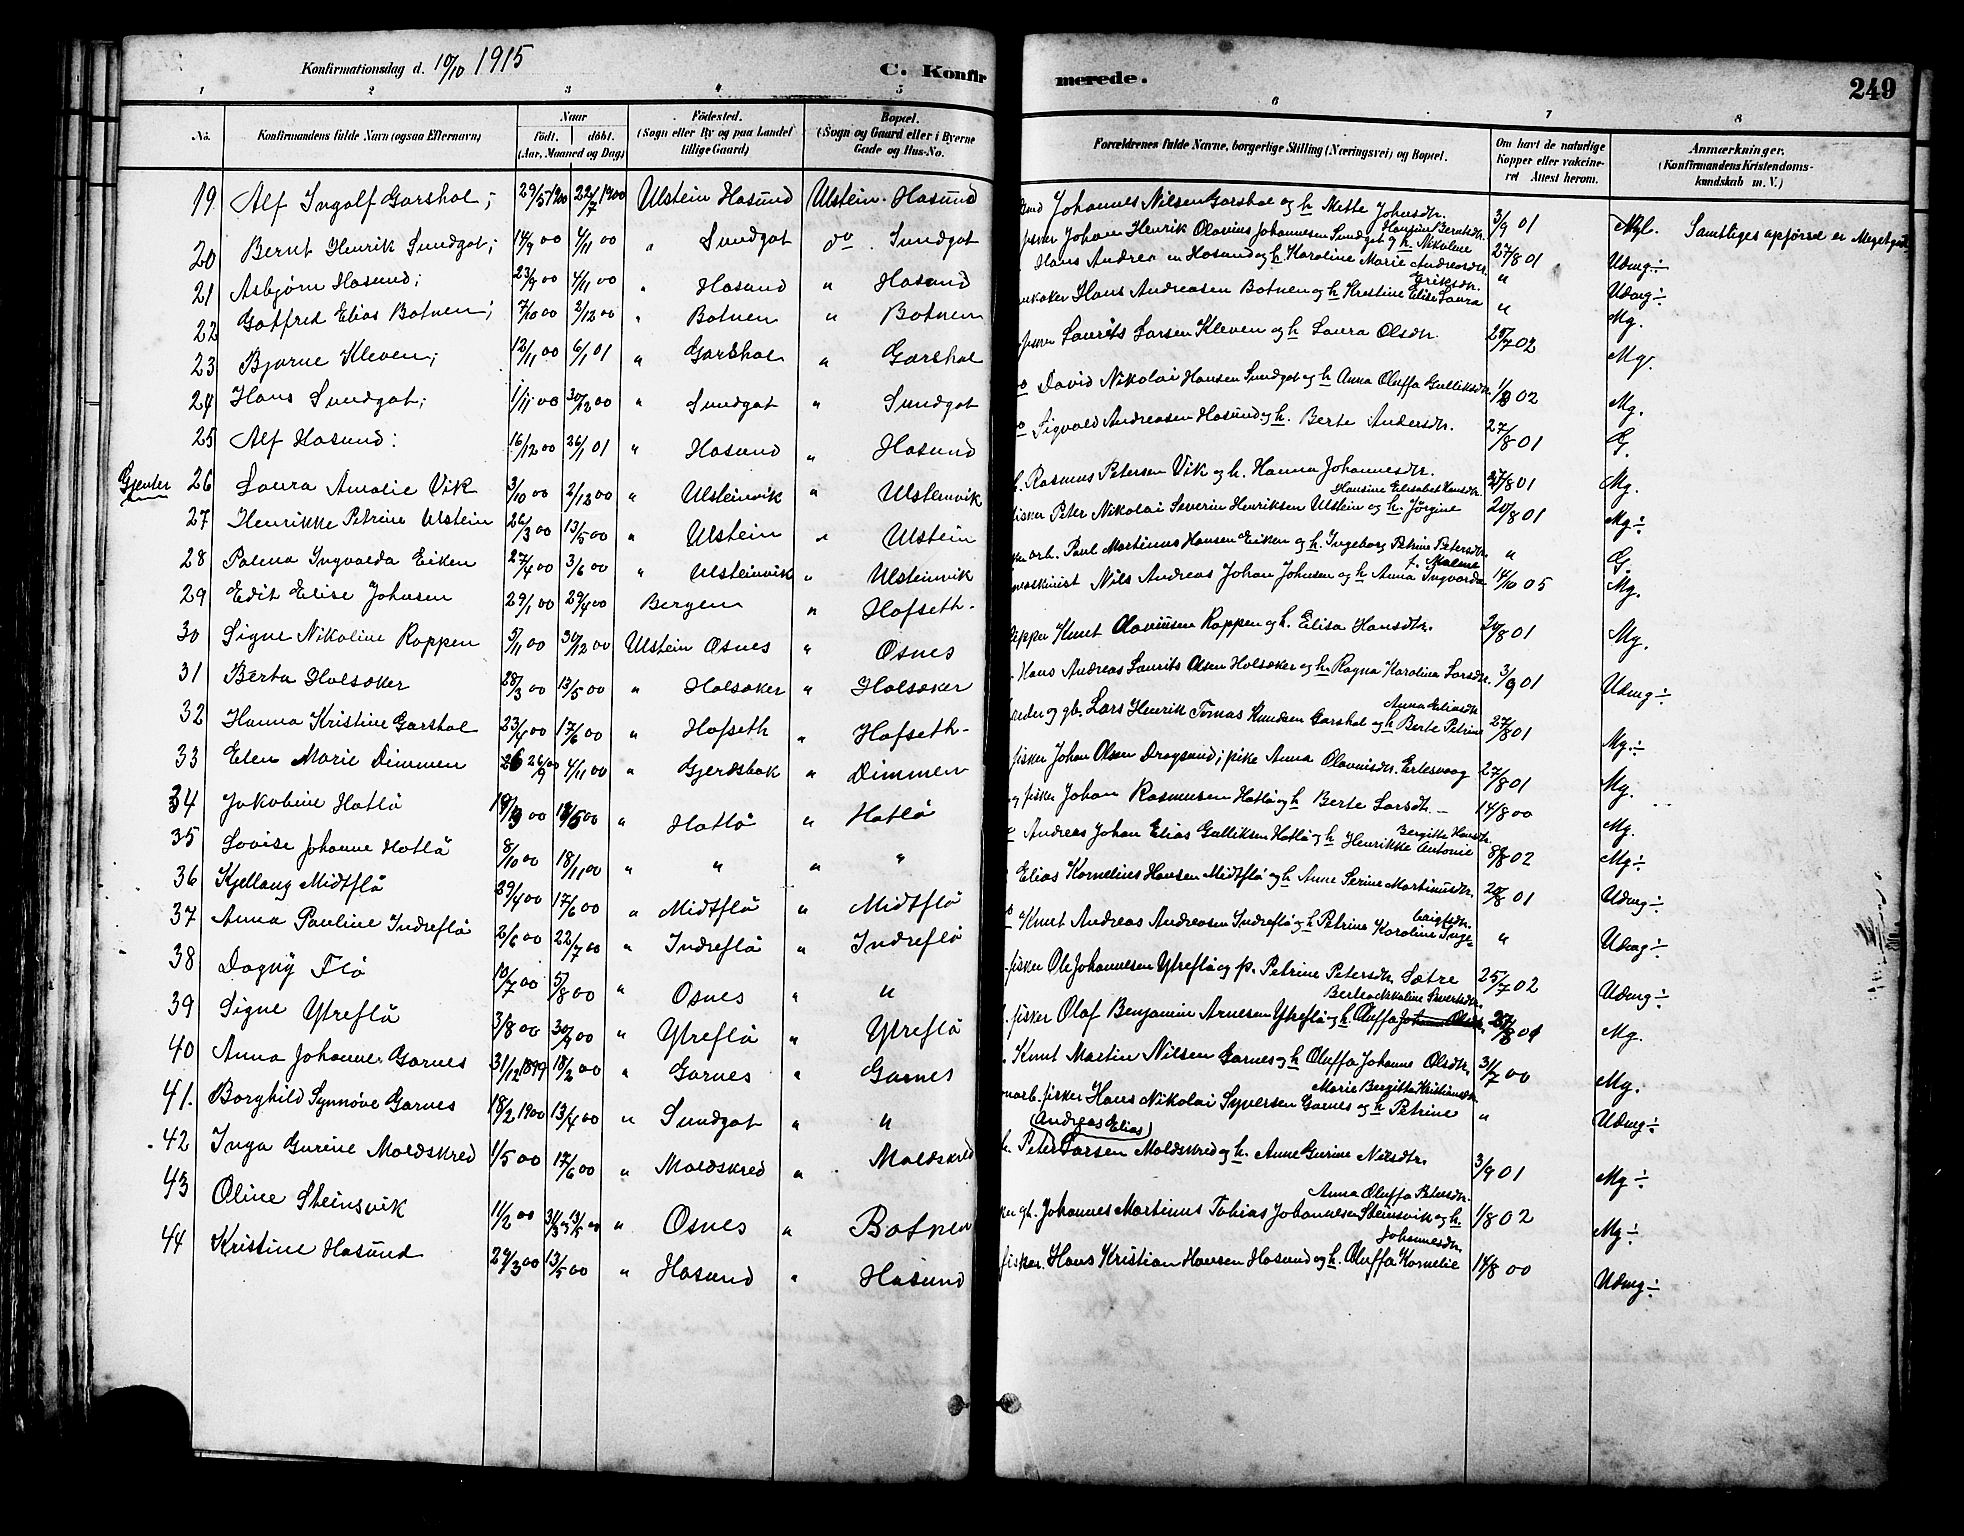 Konfirmationsdag d. 10/10 1915
C. Konfirmerede.
249
1 2 3 4 5 6 7 8
No. | Konfirmandens fulde Navn (ogsaa Efternavn) | Naar født. døbt. (Aar, Maaned og Dag) | Fødested. (Sogn eller By og paa Landet tillige Gaard) | Bopæl. (Sogn og Gaard eller i Byerne Gade og Hus-No. | Forældrenes fulde Navne, borgerlige Stilling (Næringsvei) og Bopæl. | Om havt de naturlige Kopper eller vakcineret Attest herom. | Anmærkninger. (Konfirmandens Kristendomskundskab m. V.)
19 Alf Ingolf Garshol; 29/5 1900 22/7 1900 Ulstein Hasund Ulstein Hasund Johannes Nilsen Garshol og h. Mette Johnsdtr. 3/9 01 Mg. Samtliges opførsel er Meget god
20 Bernt Henrik Sundgot; 14/9 00 4/11 00 " Sundgot do Sundgot fisker Johan Henrik Olavius Johannesen Sundgot og h. Nikoline Hansine Berntsdtr. 27/8 01 Udmg ÷
21 Asbjørn Hasund; 23/9 00 4/11 00 " Hasund " Hasund Hans Andrea en Hasund og h. Karoline Marie Andreasdtr. " Udmg ÷
22 Gotfred Elias Botnen; 7/10 00 2/12 00 " Botnen " Botnen Hans Andreasen Botnen og h. Kristine Elise Laura Eriksdtr. " Mg.
23 Bjarne Kleven; 12/11 00 6/1 01 " Garshol " Garshol fisker Laurits Larsen Kleven og h. Laura Olsdtr. 29/7 02 Mg.
24 Hans Sundgot; 1/11 00 30/12 00 " Sundgot " Sundgot David Nikolai Hansen Sundgot og h. Anna Oluffa Gulliksdtr. 1/8 02 Mg.
25 Alf Hasund: 16/12 00 26/1 01 " Hasund " Hasund Sigvald Andreasen Hasund og h. Berte Andersdtr. 27/8 01 G.
Gjenter
26 Laura Amalie Vik 3/10 00 2/12 00 " Ulsteinvik " Ulsteinvik Rasmus Petersen Vik og h. Hanna Johannesdtr. 27/8 01 Mg.
27 Henrikke Petrine Ulstein 26/3 00 13/5 00 " Ulstein " Ulstein fisker Peter Nikolai Severin Henriksen Ulstein og h. Jørgine Hansine Elisabet Hansdtr. 20/8 01 Mg ÷
28 Palma Ingvalda Eiken 27/4 00 3/6 00 " Ulsteinvik " Ulsteinvik arb. Paul Martinus Hansen Eiken og h. Ingeborg Petrine Petersdtr. " G.
29 Edit Elise Johnsen 29/1 00 29/4 00 Bergen " Hofseth. maskinist Nils Andreas Johan Johnsen og h. Anna Ingvarda f. Malme 14/10 05 Mg.
30 Signe Nikoline Roppen 5/11 00 30/12 00 Ulstein Osnes " Osnes Knut Olavusen Roppen og h. Elisa Hansdtr. 20/8 01 Mg.
31 Berta Holsæker 28/3 00 13/5 00 " Holsæker " Holsæker Hans Andreas Laurits Olsen Holsæker og h. Ragna Karolina Larsdtr. 3/9 01 Udmg ÷
32 Hanna Kristine Garshol 23/4 00 17/6 00 " Hofseth " Hofseth Lars Henrik Tomas Knudsen Garshol og h. Berte Petrine Anna Eliasdtr. 27/8 01 Mg. ÷
33 Elen Marie Dimmen 26/9 00 4/11 00 " Gjerdsbak " Dimmen fisker Johan Olsen Dragsund; pike Anna Olavusdtr. Ertesvaag 27/8 01 Mg.
34 Jakobine Hatlø 19/3 00 13/5 00 " Hatlø " Hatlø fisker Johan Rasmussen Hatlø og h. Berte Larsdtr. 14/8 00 Mg.
35 Lovise Johanne Hatlø 8/10 00 18/11 00 " " " " Andreas Johan Elias Gulliksen Hatlø og h. Henrikke Antonie Bergitte Hansdtr. 8/8 02 Mg ÷
36 Kjellaug Midtflø 29/4 00 17/6 00 " Midtflø " Midtflø Elias Kornelius Hansen Midtflø og h. Anne Serine Martinusdtr. 20/8 01 Udmg ÷
37 Anna Pauline Indreflø 2/6 00 22/7 00 " Indreflø " Indreflø Knut Andreas Andreasen Indreflø og h. Petrine Karoline " Udmg ÷
38 Dagny Flø 10/7 00 5/8 00 " Osnes " " fisker Ole Johannesen Ytreflø og p. Petrine Petersdtr. Sætre 25/7 02 Udmg ÷
39 Signe Ytreflø 3/8 00 30/9 00 " Ytreflø " Ytreflø fisker Olaf Benjamin Arnesen Ytreflø og h. Oluffa Johanne Olsdtr. 27/8 01 Mg.
40 Anna Johanne Garnes 31/12 1899 18/2 00 " Garnes " Garnes Knut Martin Nilsen Garnes og h. Oluffa Johanne Olsdtr. 31/7 00 Mg.
41. Borghild Synnøve Garnes 18/2 1900 13/4 00 " Sundgot " " fisker Hans Nikolai Syversen Garnes og h. Petrine Marie Bergitte Kristiansdtr. " Udmg ÷
42 Inga Gurine Moldskred 1/5 00 17/6 00 " Moldskred " Moldskred Peter (Andreas Elias) Larsen Moldskred og h. Anne Gurine Nilsdtr. 3/9 01 Mg ÷
43 Oline Steinsvik 11/2 00 13/5 00 " Osnes " Botnen Johannes Martinus Tobias Johannesen Steinsvik og h. Anna Oluffa Petersdtr. 1/8 02 Mg ÷
44 Kristine Hasund 29/3 00 13/5 00 " Hasund " Hasund fisker. Hans Kristian Hansen Hasund og h. Oluffa Kornelie Johannesdtr. 14/8 00 Udmg ÷